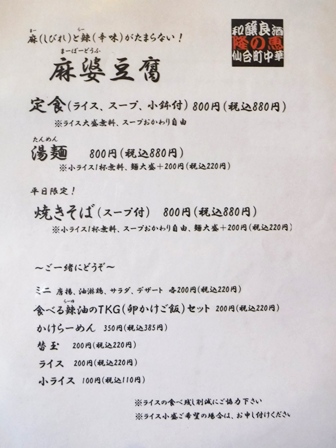 和醸良酒
○の恵
仙台町中華
麻(しびれ)と辣(辛味)がたまらない!
まーぼーどうふ
麻婆豆腐
定食(ライス、スープ、小鉢付) 800円(税込880円)
※ライス大盛無料、スープおかわり自由
たんめん
湯麺 800円(税込880円)
※小ライス1杯無料、麺大盛+200円(税込220円)
平日限定!
焼きそば(スープ付) 800円(税込880円)
※小ライス1杯無料、スープおかわり自由、麺大盛+200円(税込220円)
〜ご一緒にどうぞ〜
ミニ 唐揚、油淋鶏、サラダ、デザート 各200円(税込220円)
食べる辣油のTKG(卵かけご飯)セット 200円(税込220円)
かけらーめん 350円(税込385円)
替玉 200円(税込220円)
ライス 200円(税込220円)
小ライス 100円(税込110円)
※ライスの食べ残し削減にご協力下さい
※ライス小盛ご希望の場合は、お申し付けください